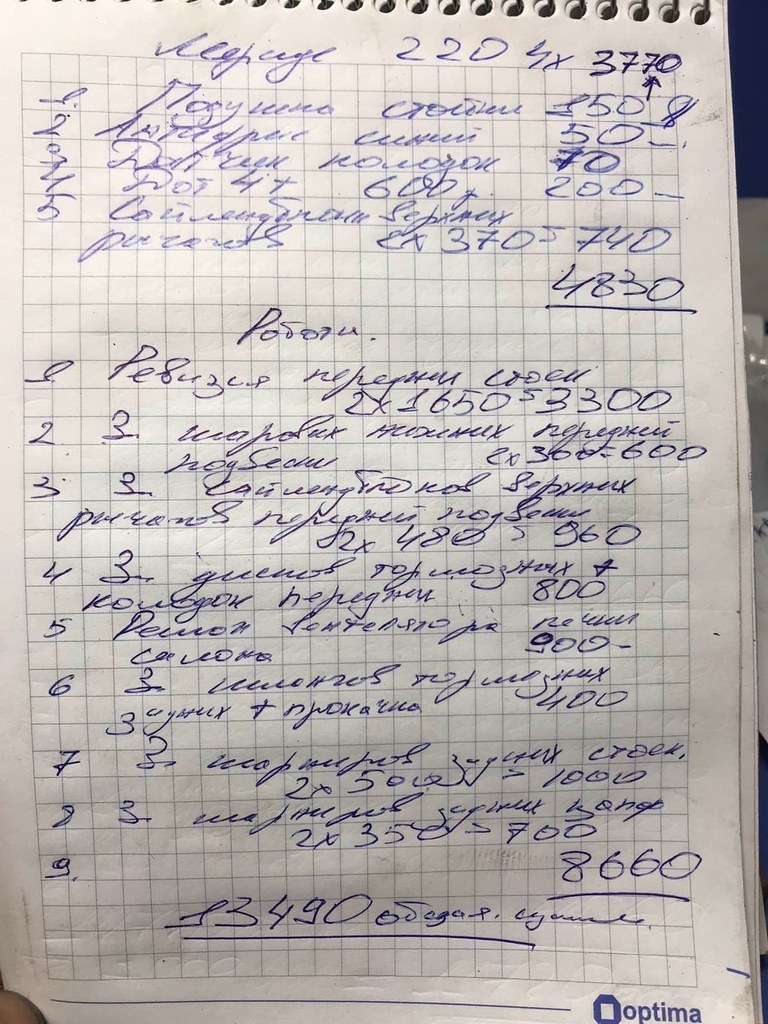 Мерседес 220 4х 3770
1. Подушка стойки 150
2 Антифриз синий 50 -.
3 Датчик колодок 70
4 Дот 4+ 600г. 200 -
5 Сайлентблоки верхних
рычагов 2х370=740
4830
Роботи.
1 Ревизия передних стоек
2х1650=3300
2 З. шаровых нижних передней
подвески 2х300=600
3 З. сайлентблоков верхних
рычагов передней подвески
2х 480 = 960
4 З. дисков тормозных +
колодок передних 800
5 Ремонт вентелятора печки
салона 900-
6 З. шлангов тормозных
задних + прокачка 400
7 З. шарниров задних стоек.
2х500 = 1000
8 З. шарниров задних цапф
2х350 = 700
9. 8660
13490 общая. сумма.
optima